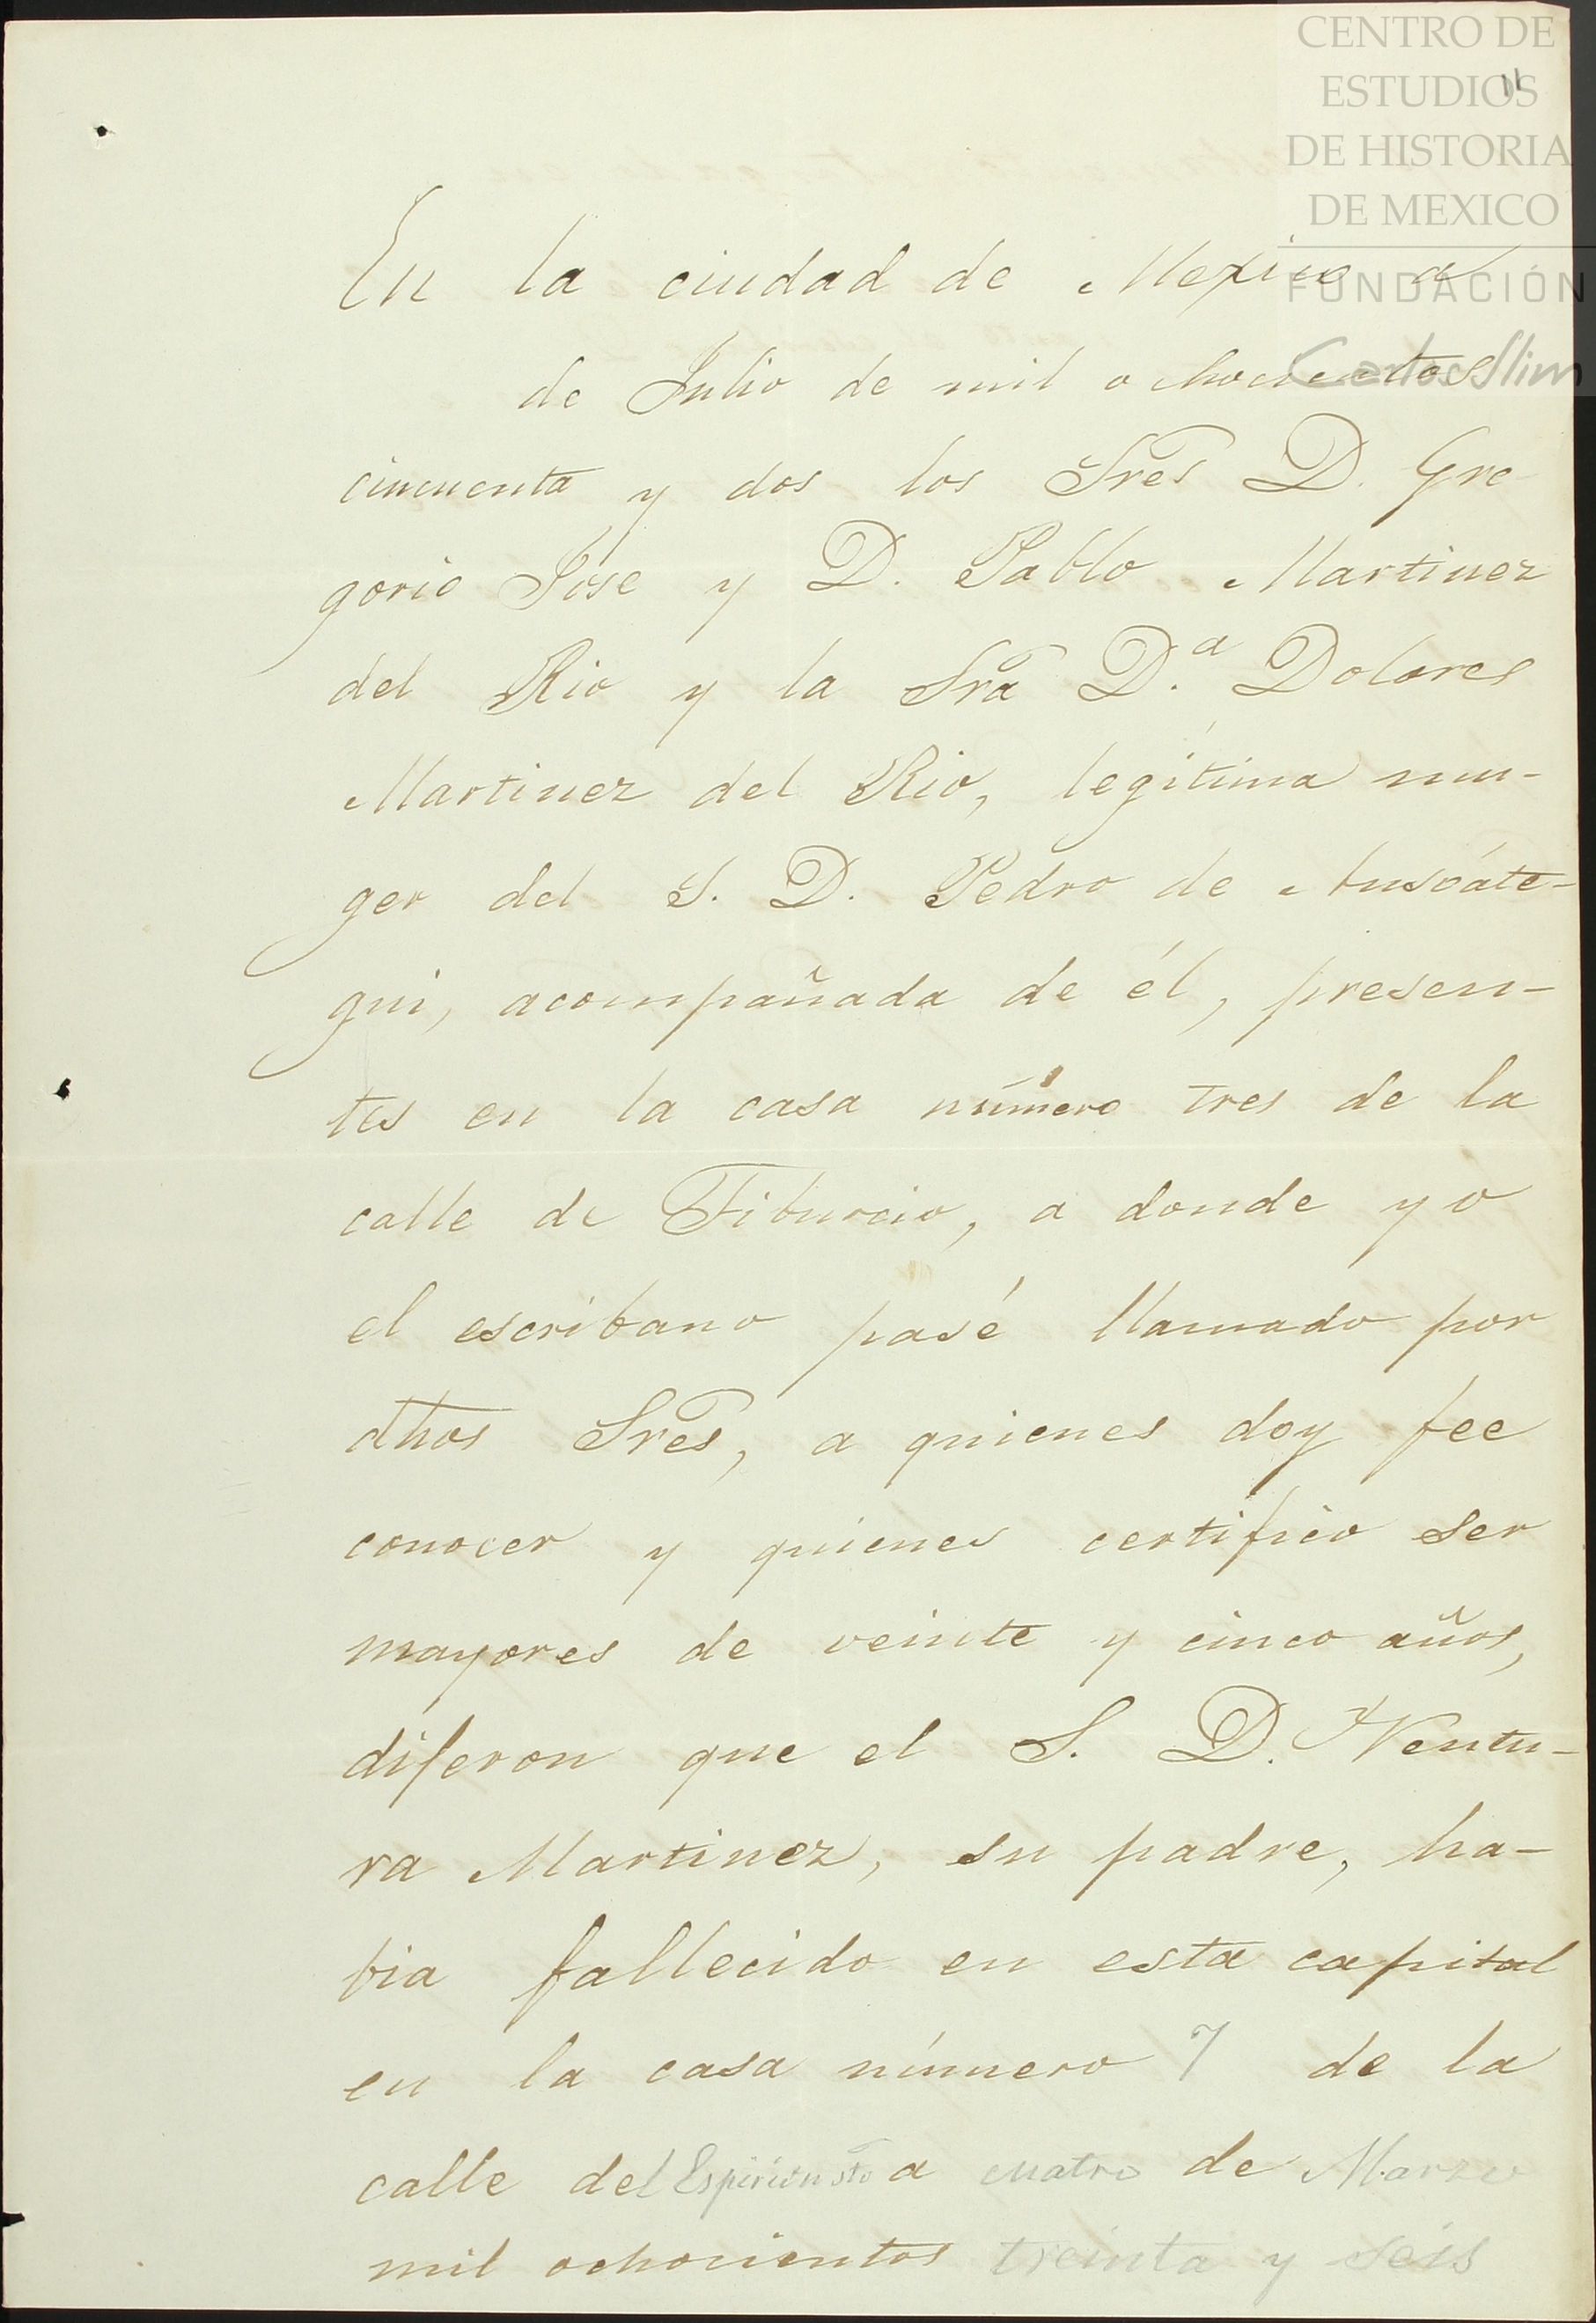 CENTRO DE
ESTUDIOS
DE HISTORIA
DE MEXICO
FUNDACIÓN
Carlos Slim
11
En la ciudad de Mexico a
de Julio de mil ochocientos
cincuenta y dos los Sres D. Gre
gorio José y D. Pablo Martinez
del Rio y la Sra D.ª Dolores
Martinez del Rio, legítima mu-
ger del S. D. Pedro de Ansoáte-
gui, acompañada de él, presen-
tes en la casa número tres de la
calle de Tiburcio, a donde yo
el escribano pasé llamado por
dhos Sres, a quienes doy fee
conocer y quienes certifico ser
mayores de veinte y cinco años,
dijeron que el S. D. Ventu-
ra Martinez, su padre, ha-
bia fallecido en esta capital
en la casa número 7 de la
calle del Espiritu Sto a cuatro de Marzo
mil ochocientos treinta y seis